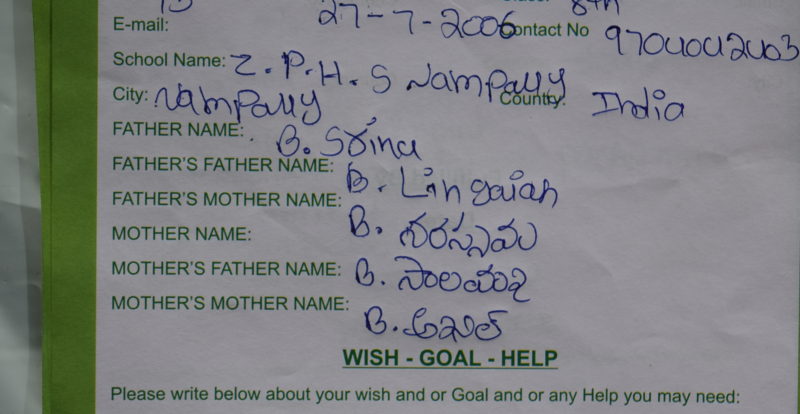 E-mail: 27-7-2006 Contact No 97040042403
School Name: Z.P.H.S Nampally
City: Nampally Country: India
FATHER NAME: B. Srinu
FATHER'S FATHER NAME: B. Lingaiah
FATHER'S MOTHER NAME: B.
MOTHER NAME: B.
MOTHER'S FATHER NAME: B.
MOTHER'S MOTHER NAME:
WISH - GOAL - HELP
Please write below about your wish and or Goal and or any Help you may need: